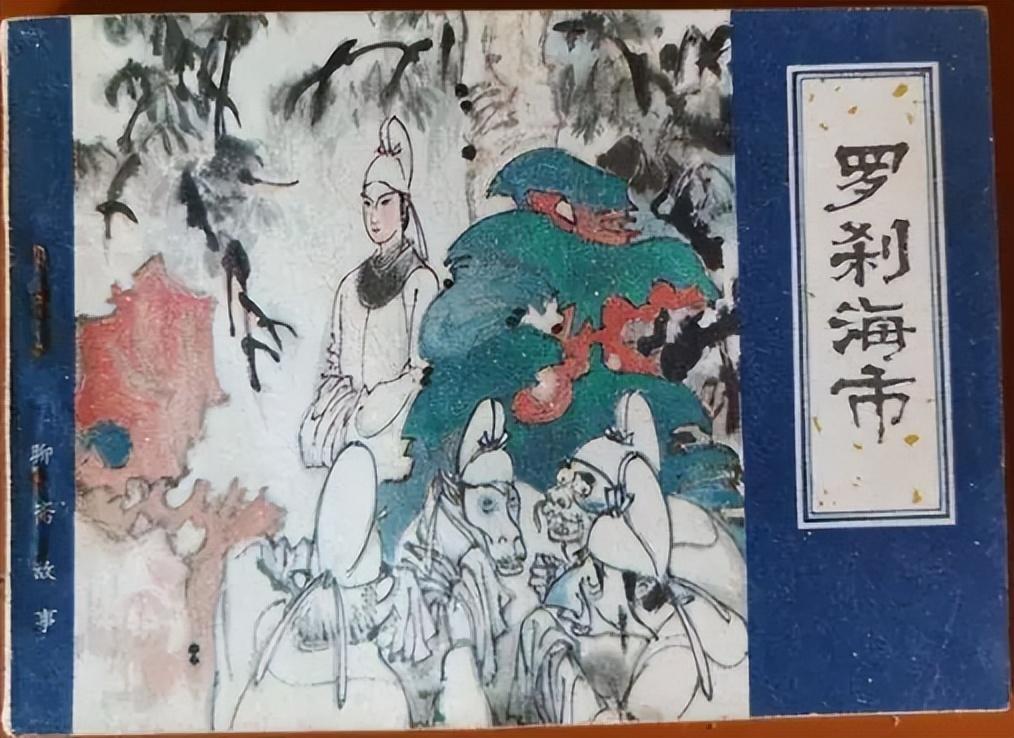 罗刹海市
聊斋故事